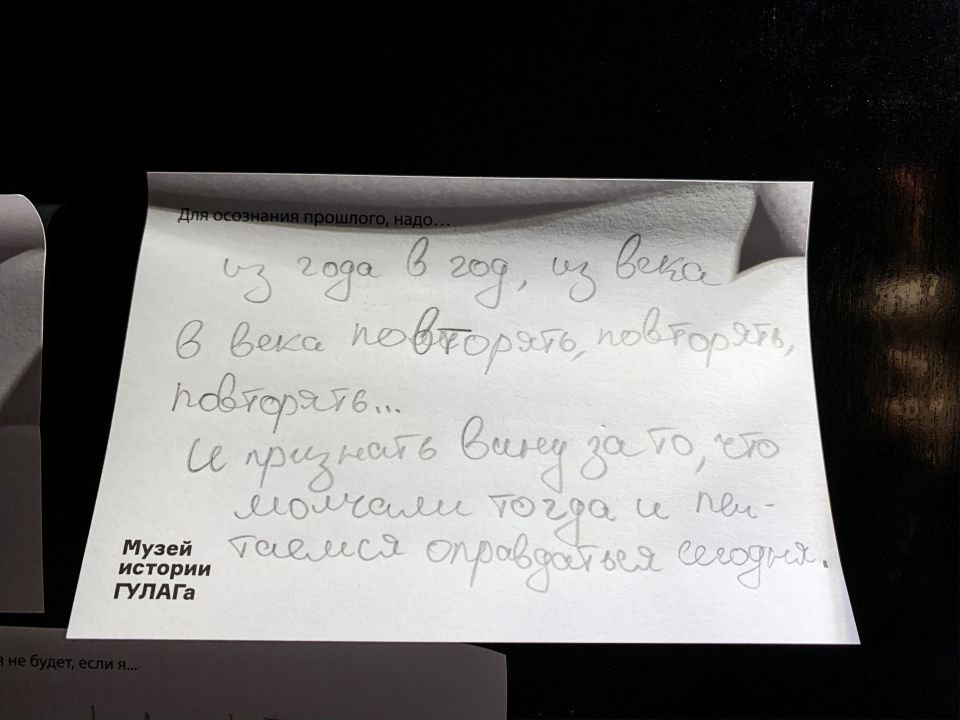 Для осознания прошлого, надо...
из года в год, из века
в века повторять, повторять,
повторять...
И признать вину за то, что
молчали тогда и пы-
таемся оправдаться сегодня.
Музей
истории
ГУЛАГа
я не будет, если я...